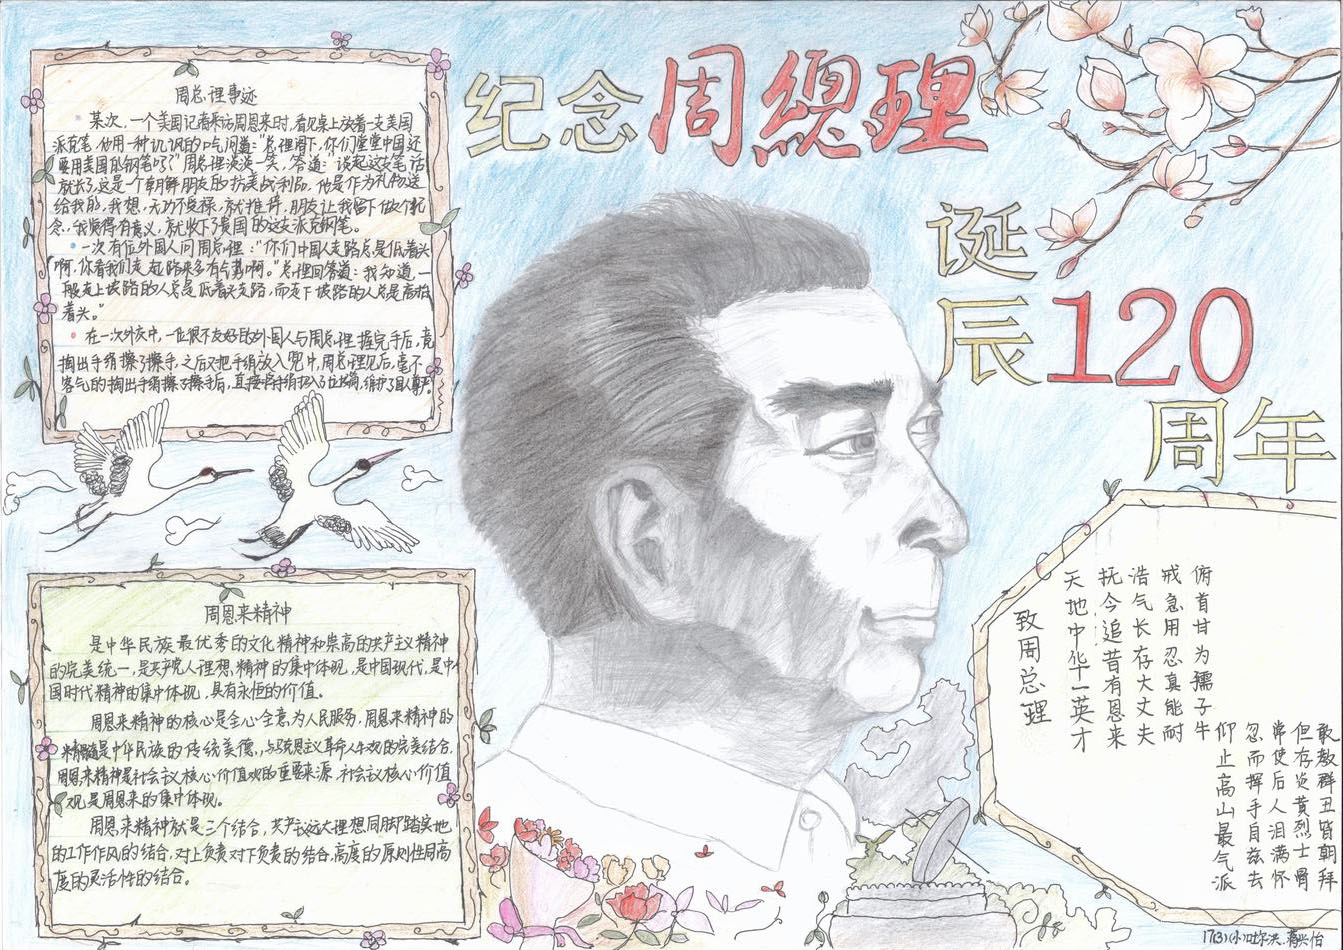 纪念周總理
诞
辰120
周年
周总理事迹
某次，一个美国记者采访周恩来时，看见桌上放着一支美国
派克笔，他用一种讥讽的口气问道："总理阁下，你们堂堂中国还
要用美国的钢笔吗？"周总理淡淡一笑，答道："说起这支笔话
就长了，这是一个朝鲜朋友的抗美战利品，他是作为礼物送
给我的，我想，无功不受禄，就推辞，朋友让我留下做个纪
念，我觉得有意义，就收下了贵国的这支派克钢笔。
一次有位外国人问周总理："你们中国人走路总是低着头
啊，你看我们走起路来多有气势啊。"总理回答道：我知道，一
般走上坡路的人总是低着头走路，而走下坡路的人总是高抬
着头。"
在一次外交中，一位很不友好的外国人与周总理握完手后，竟
掏出手绢擦了擦手，之后又把手绢放入兜中，周总理见后，毫不
客气的掏出手绢擦了擦手后，直接将手绢扔入了垃圾筒，维护了国人尊严。
周恩来精神
是中华民族最优秀的文化精神和崇高的共产主义精神
的完美统一，是共产党人理想、精神的集中体现，是中国现代，是中
国时代精神的集中体现，具有永恒的价值。
周恩来精神的核心是全心全意为人民服务，周恩来精神的
精髓是中华民族的传统美德，与马克思主义革命人生观的完美结合，
周恩来精神是社会主义核心价值观的重要来源，社会主义核心价值
观是周恩来的集中体现。
周恩来精神就是三个结合，共产主义远大理想同脚踏实地
的工作作风的结合，对上负责对下负责的结合，高度的原则性同高
度的灵活性的结合。
致周总理
天地中华一英才
抚今追昔有恩来
浩气长存大丈夫
戒急用忍真能耐
俯首甘为孺子牛
敢教群丑皆朝拜
但存炎黄烈士骨
常使后人泪满怀
忽而挥手自兹去
仰止高山最气派
17(3)